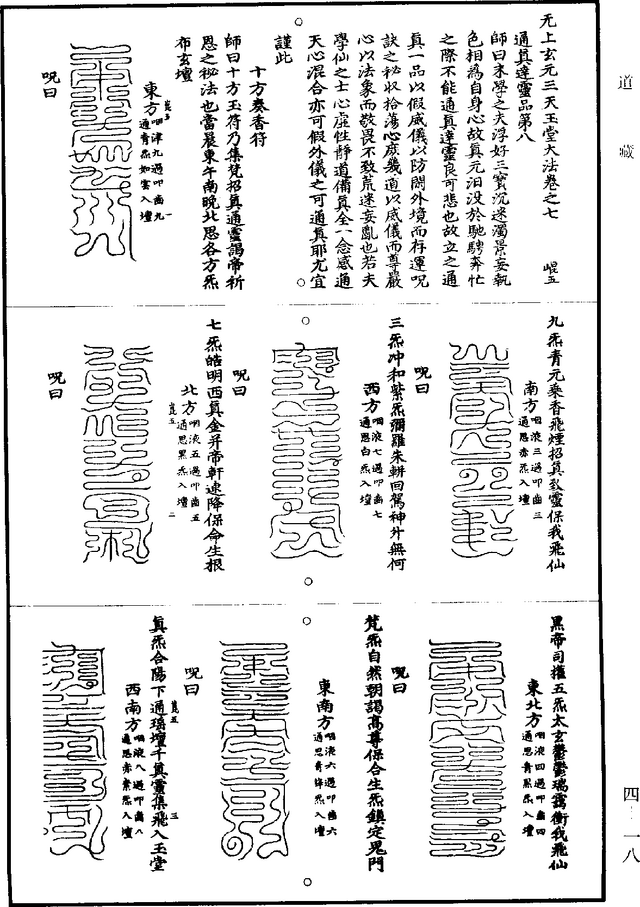 道藏
四—一八
无上玄元三天玉堂大法卷之七
崐五
通真達靈品第八
師曰末學之夫浮好三寳沉迷濁景妄執
色相為自身心故真元汩没於馳騁奔忙
之際不能通真達靈良可悲也故立之通
真一品以假威儀以防閑外境而存運呪
訣之秘收拾蕩心庶幾道以威儀而尊嚴
心以法象而敬畏不致荒迷妄亂也若夫
學仙之士心虛性靜道備真全一念感通
天心混合亦可假外儀之可通真耶尤宜
謹此
十方奏香符
師曰十方玉符乃集梵招真通靈謁帝祈
恩之秘法也當晨東午南晚北思各方炁
布玄壇
東方
咽津九過叩齒九
通青炁如雲入壇
崑五
一
呪曰
九炁青元乘香飛煙招真致靈保我飛仙
南方
咽液三過叩齒三
通思赤炁入壇
呪曰
三炁冲和紫炁瀰羅朱軿回駕神外無何
西方
咽液七過叩齒七
通思白炁入壇
呪曰
七炁皓明西真金昇帝軒速降保命生根
北方
咽液五過叩齒五
通思黑炁入壇
崑五
二
呪曰
黑帝司攉五炁太玄鬱鬱瑞靄衝我飛仙
東北方
咽液四過叩齒四
通思青黑炁入壇
呪曰
梵炁自然朝謁高尊保合生炁鎮定鬼門
東南方
咽液六過叩齒六
通思青絳炁入壇
呪曰
真炁合陽下通瑶壇千真靈集飛入玉堂
崑五
三
西南方
咽液八過叩齒八
通思赤素炁入壇